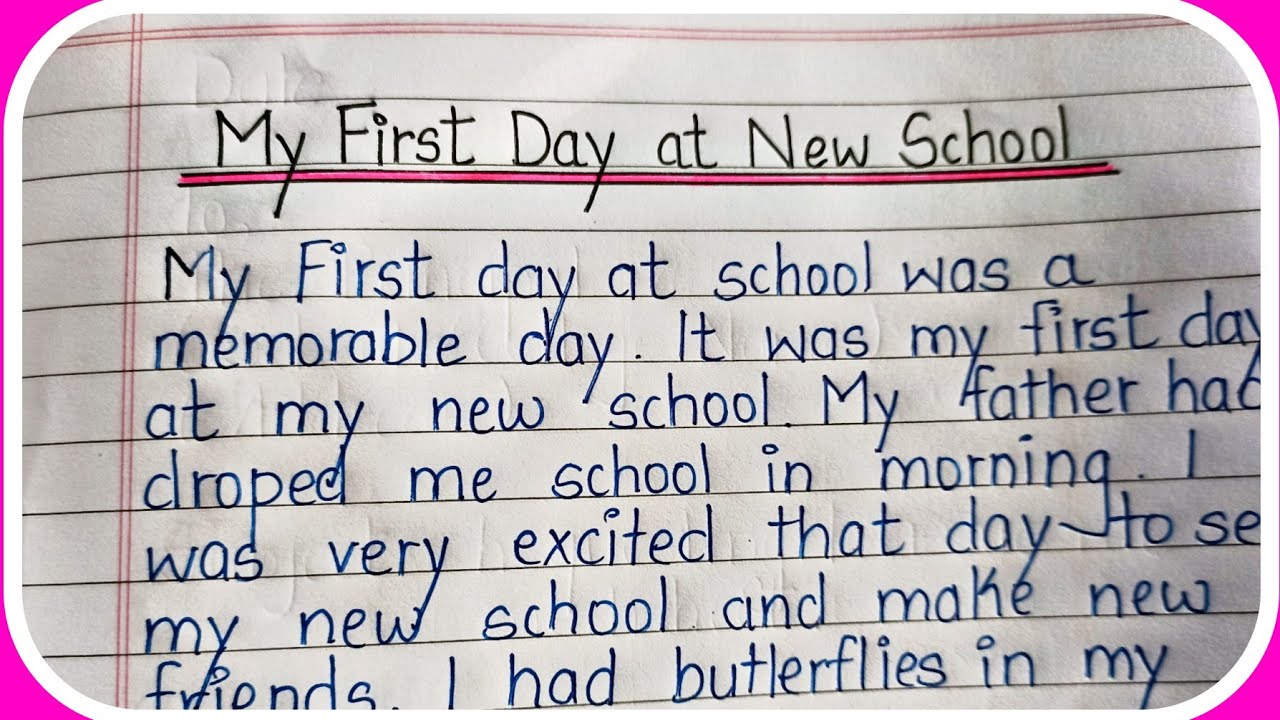 My First Day at New School
My First day at school was a
memorable day. It was my first day
at my new school. My father had
droped me school in morning. I
was very excited that day to se
my new school and make new
friends. I had butterflies in my